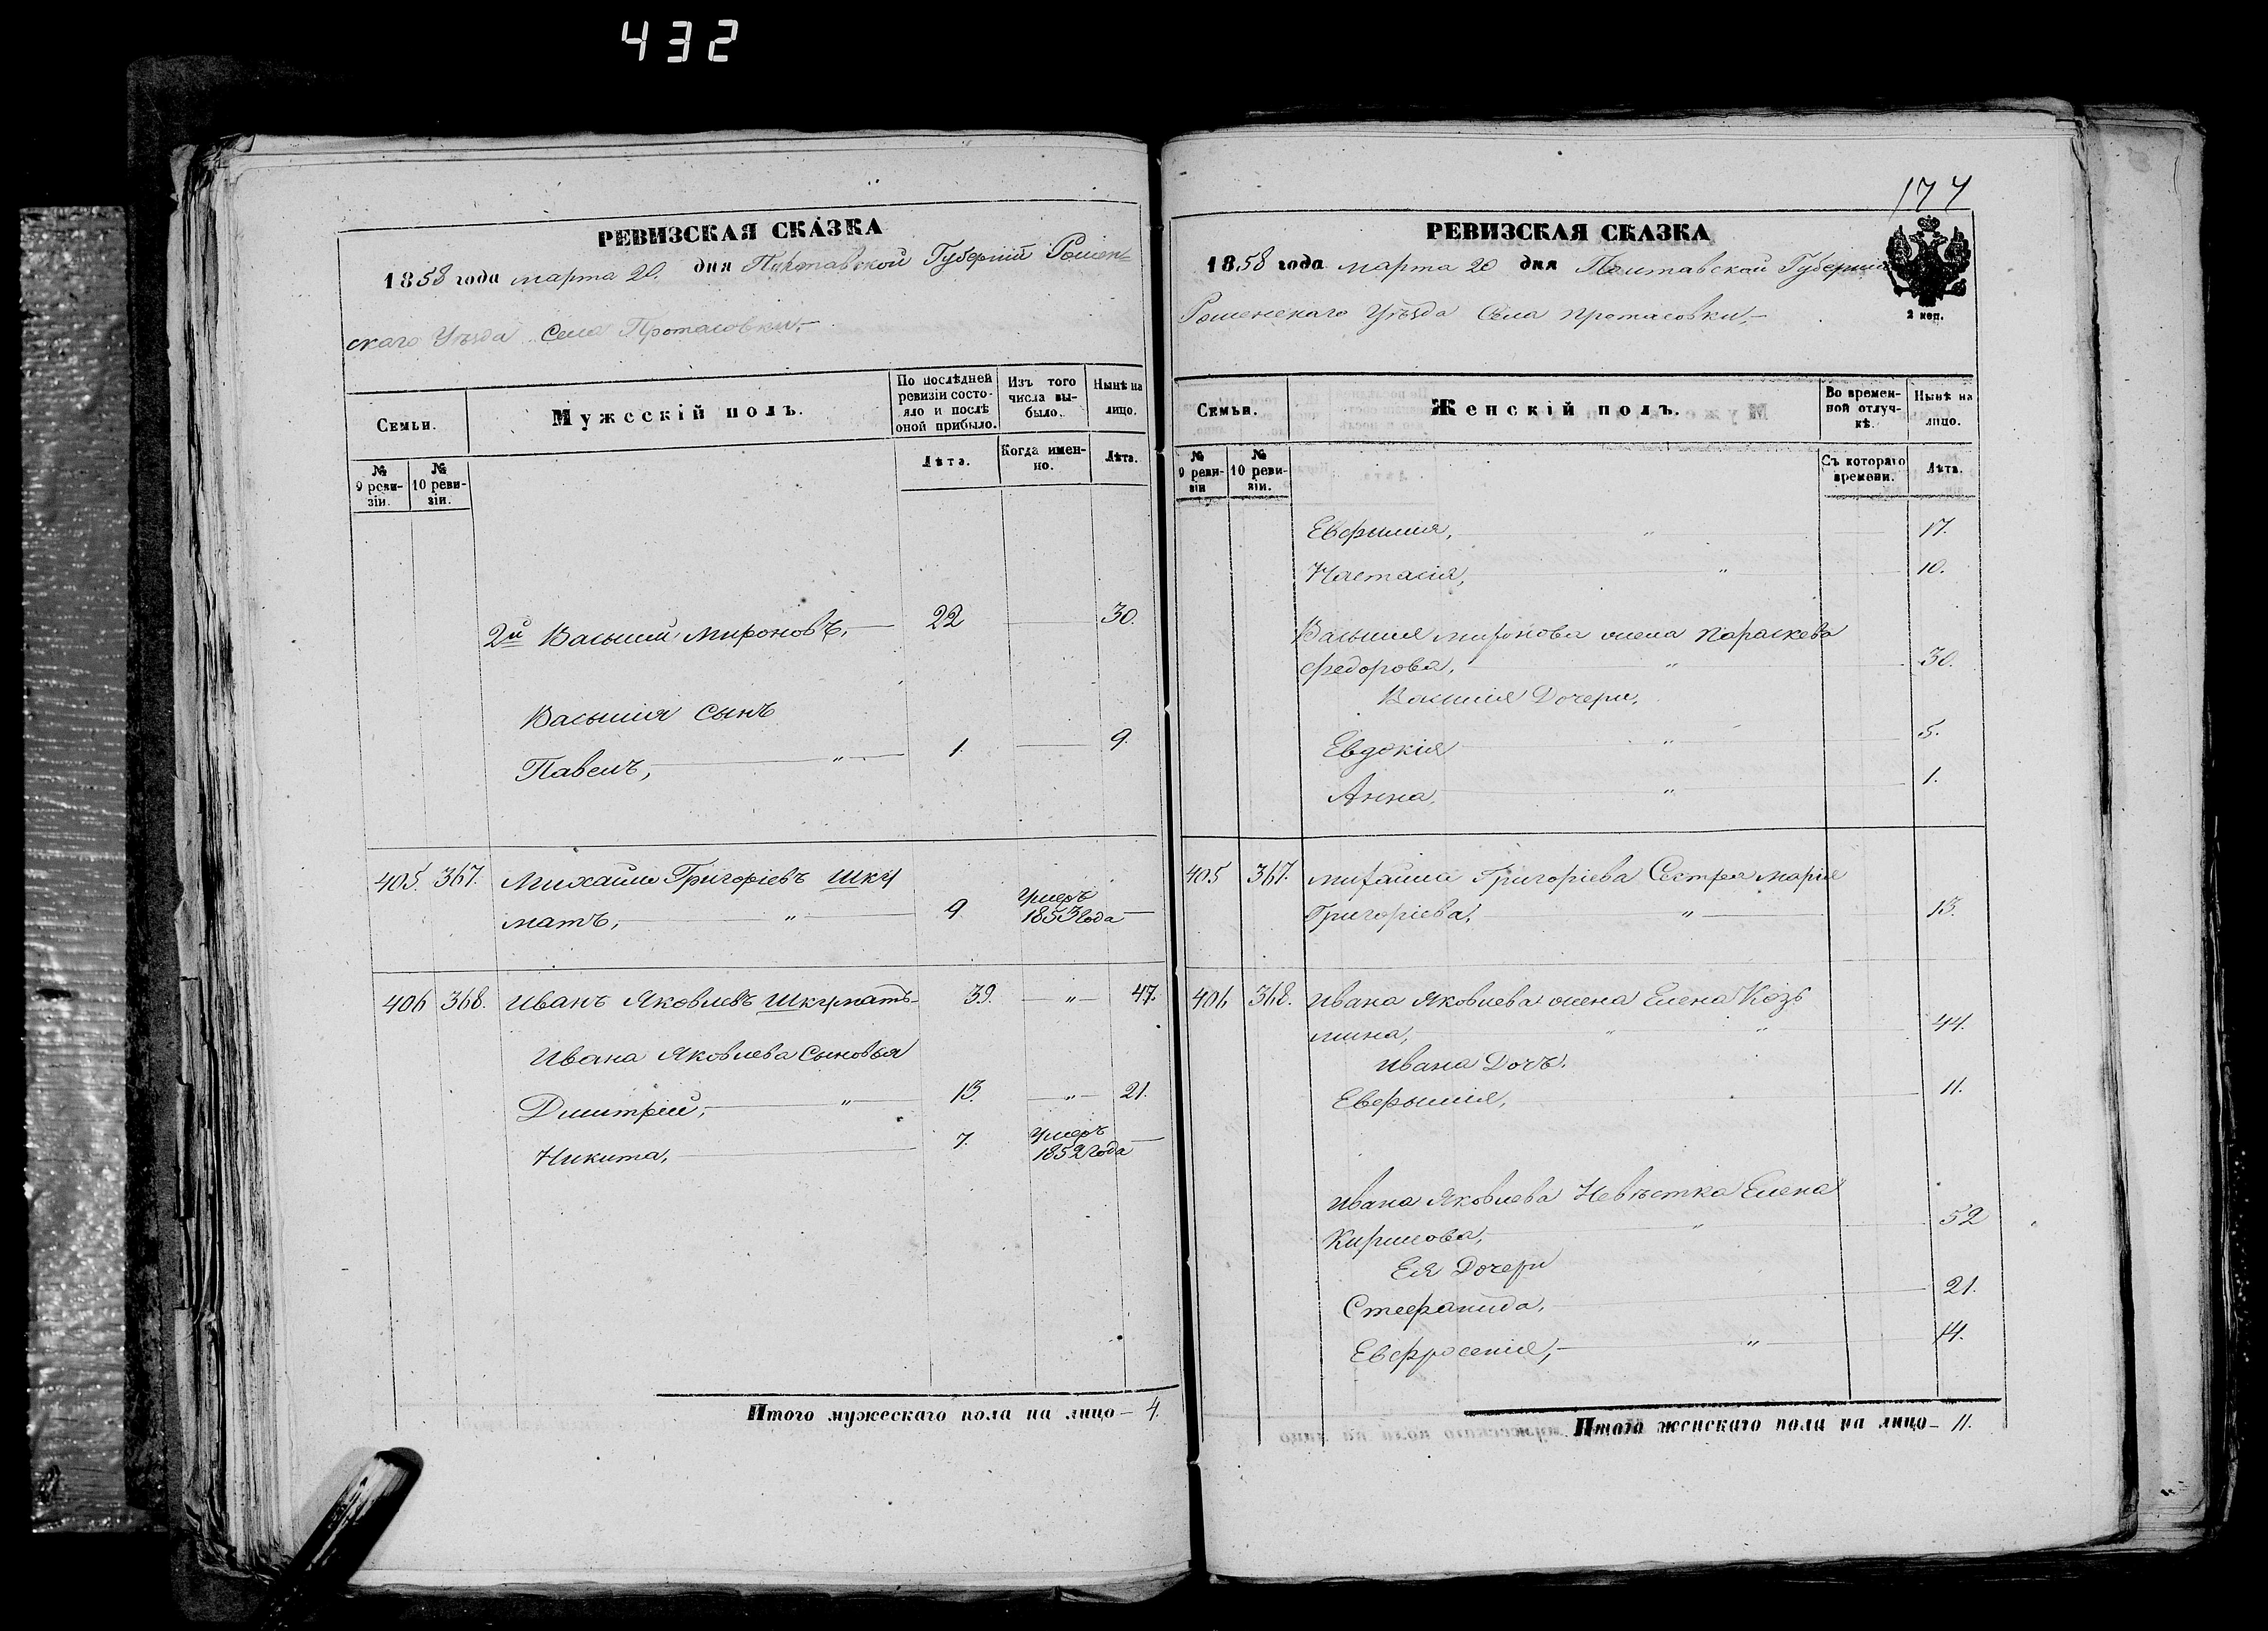 432
РЕВИЗСКАЯ СКАЗКА
1858 года марта 20. дня Полтавской Губерніи Ромен
скаго Уѣзда Села Протасовки,
Семьи.
Мужескій полъ.
По послѣдней ревизіи состояло и послѣ оной прибыло.
Изъ того числа выбыло.
Нынѣ на лицо.
№ 9 ревизіи.
№ 10 ревизіи.
Лѣта.
Когда именно.
Лѣта.
2й Василій Мироновъ, — 22 — 30.
Василія сынъ
Павелъ, — " — 1. — 9.
405. 367. Михаилъ Григоріевъ Шкур
матъ, — " — 9 Умеръ 1853 года —
406 368. Иванъ Яковлевъ Шкурматъ 39. — " — 47.
Ивана Яковлева сыновья
Дмитрій, — " — 13. — " — 21.
Никита, — 7. Умеръ 1852 года —
Итого мужескаго пола на лицо — 4.
174
РЕВИЗСКАЯ СКАЗКА
1858 года марта 20 дня Полтавской Губерніи
Роменскаго Уѣзда Села Протасовки,
2 коп.
Семьи.
Женскій полъ.
Во временной отлучкѣ.
Нынѣ на лицо.
№ 9 ревизіи
№ 10 ревизіи.
Съ котораго времени.
Лѣта.
Евфимія, — " — 17.
Настасія, — " — 10.
Василія Миронова жена Параскева
Федорова, — " — 30.
Василія Дочери,
Евдокія — " — 5.
Анна, — " — 1.
405 367. Михаила Григоріева Сестра Марія
Григоріева, — " — 13.
406 368. Ивана Яковлева жена Елена Козь
мина, — " — " — 44.
Ивана Дочь.
Евфимія, — 11.
Ивана Яковлева Невѣстка Елена
Кирилова, — " — 52
Ея Дочери
Стефанида, — 21.
Евфросенія, — " — 14.
Итого женскаго пола на лицо — 11.